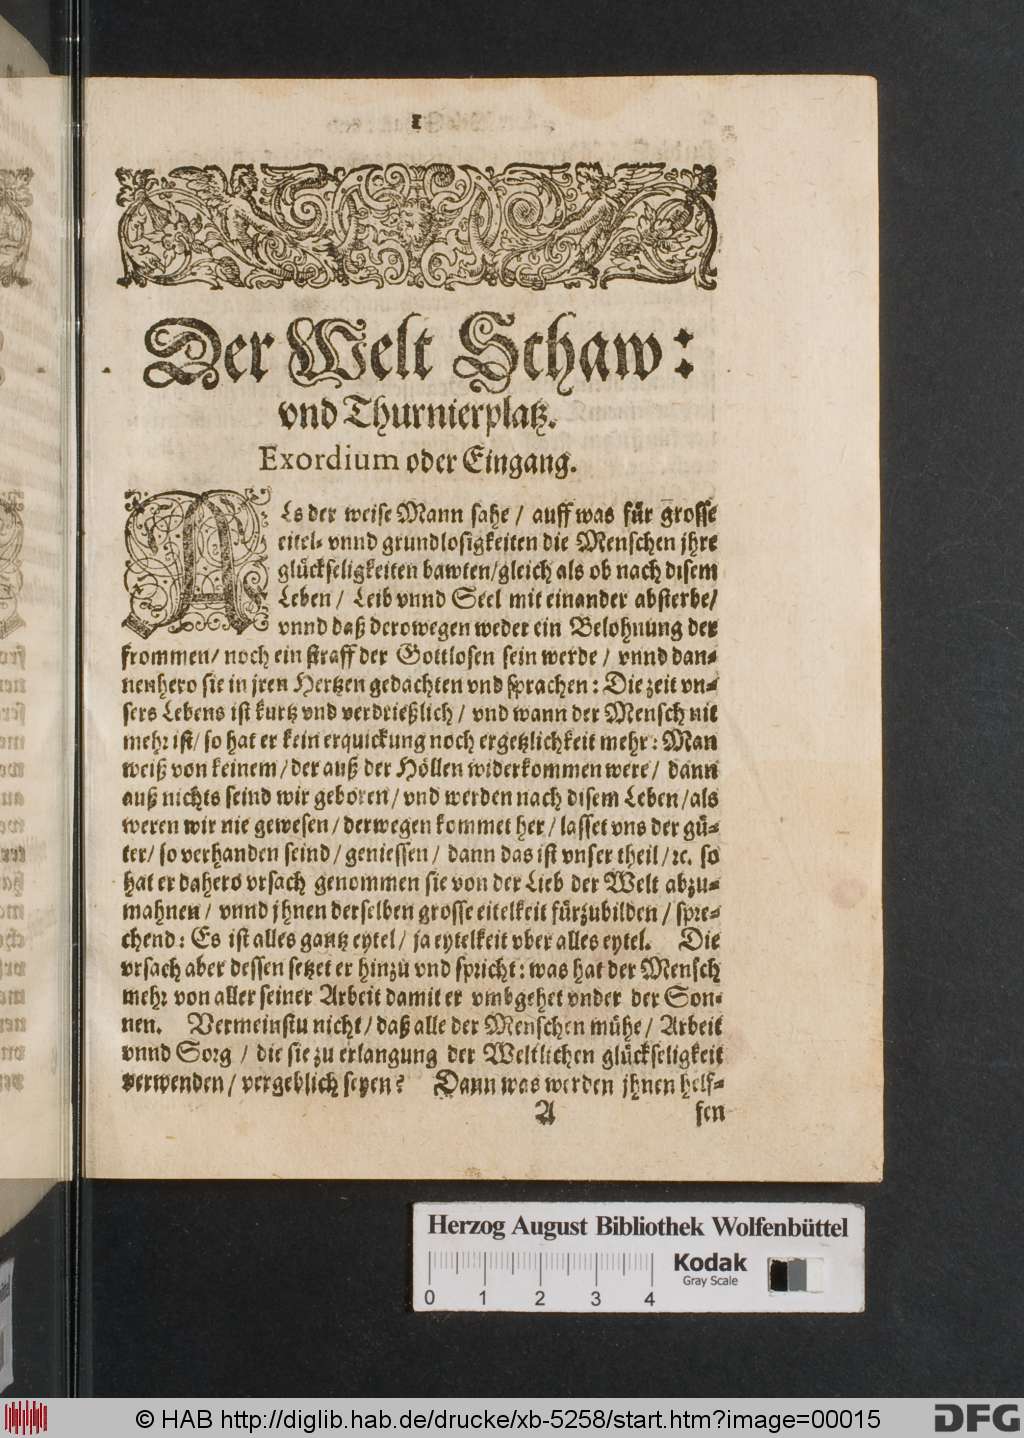 1
Der Welt Schaw:
vnd Thurnierplatz.
Exordium oder Eingang.
ALs der weise Mann sahe / auff was für grosse
eitel- vnnd grundlosigkeiten die Menschen jhre
glückseligkeiten bawten/gleich als ob nach disem
Leben / Leib vnnd Seel mit einander absterbe/
vnnd daß derowegen weder ein Belohnung der
frommen/ noch ein straff der Gottlosen sein werde / vnnd dan-
nenhero sie in jren Hertzen gedachten vnd sprachen: Die zeit vn-
sers Lebens ist kurtz vnd verdrießlich / vnd wann der Mensch nit
mehr ist/ so hat er kein erquickung noch ergetzlichkeit mehr: Man
weiß von keinem / der auß der Höllen widerkommen were / dann
auß nichts seind wir geboren / vnd werden nach disem Leben / als
weren wir nie gewesen / derwegen kommet her / lasset vns der gü-
ter/ so verhanden seind / geniessen / dann das ist vnser theil /ꝛc. so
hat er dahero vrsach genommen sie von der Lieb der Welt abzu-
mahnen / vnnd jhnen derselben grosse eitelkeit fürzubilden / spre-
chend: Es ist alles gantz eytel / ja eytelkeit vber alles eytel. Die
vrsach aber dessen setzet er hinzu vnd spricht: was hat der Mensch
mehr von aller seiner Arbeit damit er vmbgehet vnder der Son-
nen. Vermeinstu nicht / daß alle der Menschen mühe / Arbeit
vnnd Sorg / die sie zu erlangung der Weltlichen glückseligkeit
verwenden / vergeblich seyen? Dann was werden jhnen helf-
A fen
Herzog August Bibliothek Wolfenbüttel
Kodak
Gray Scale
0 1 2 3 4
© HAB http://diglib.hab.de/drucke/xb-5258/start.htm?image=00015
DFG